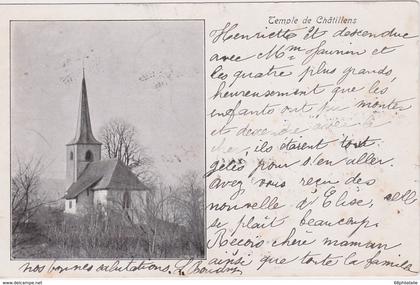 Temple de Châtillens
Henriette Et descendue
avec Mme Jaunin et
les quatre plus grands,
heureusement que les
enfants ont pu monter
et descendre
ils étaient tout
gelés pour s'en aller.
Avez vous reçu des
nouvelle d'Elise, elle
se plait beaucoup
Reçois chère maman
ainsi que toute la famille
nos bonnes salutations.
68philatelie
© 68philatelie